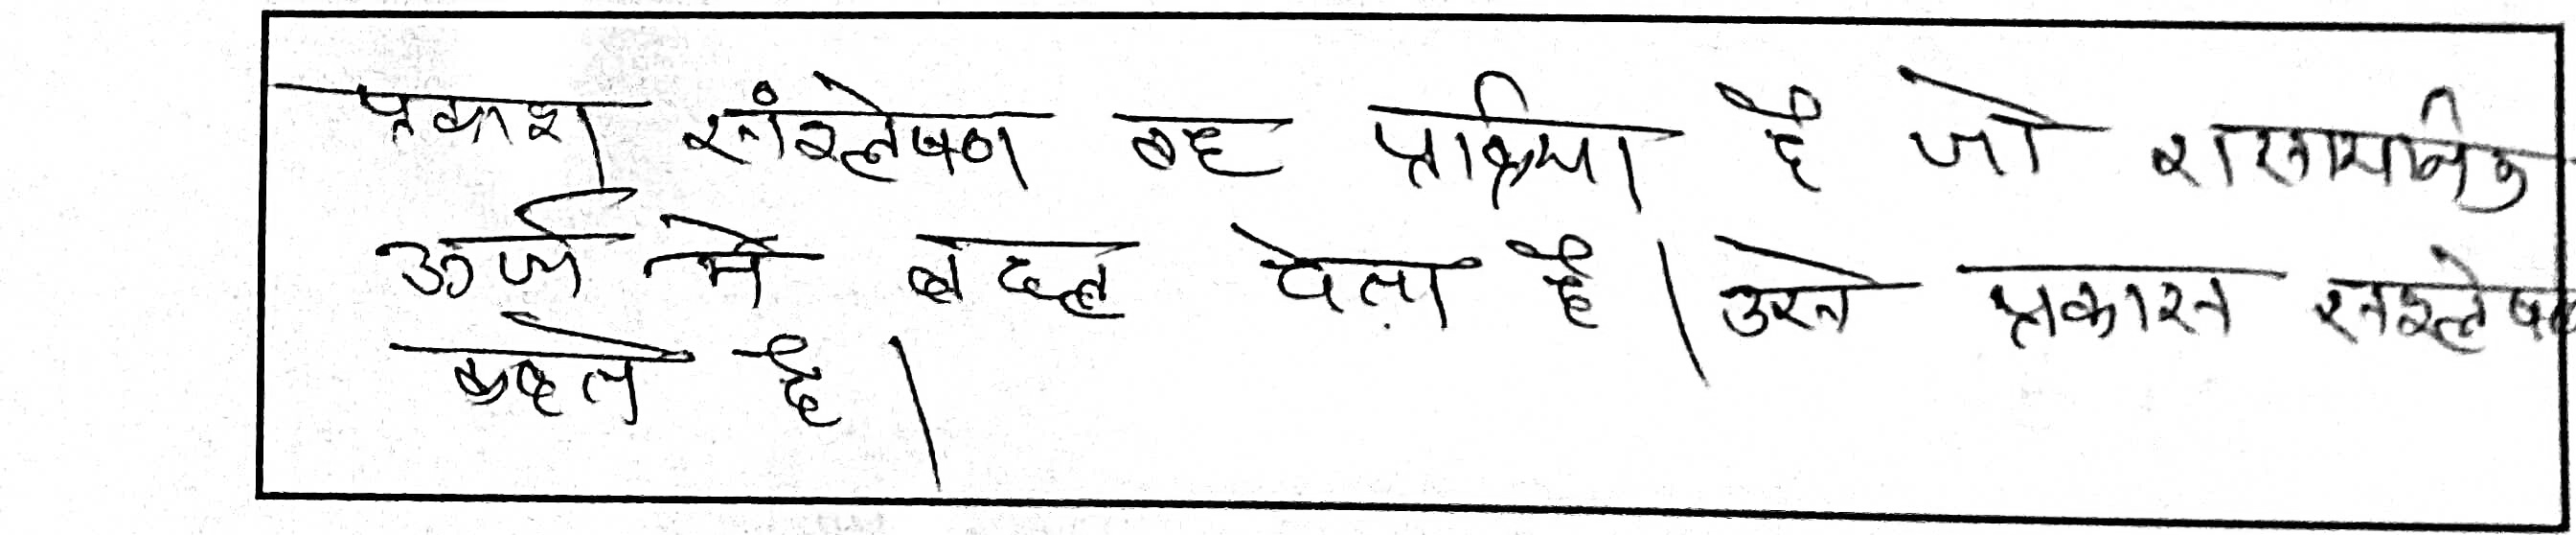 प्रकाश संश्लेषण वह प्रक्रिया है जो रासायनिक
ऊर्जा मे बदल देता है। उसे प्रकास सश्लेषण
कहते है।